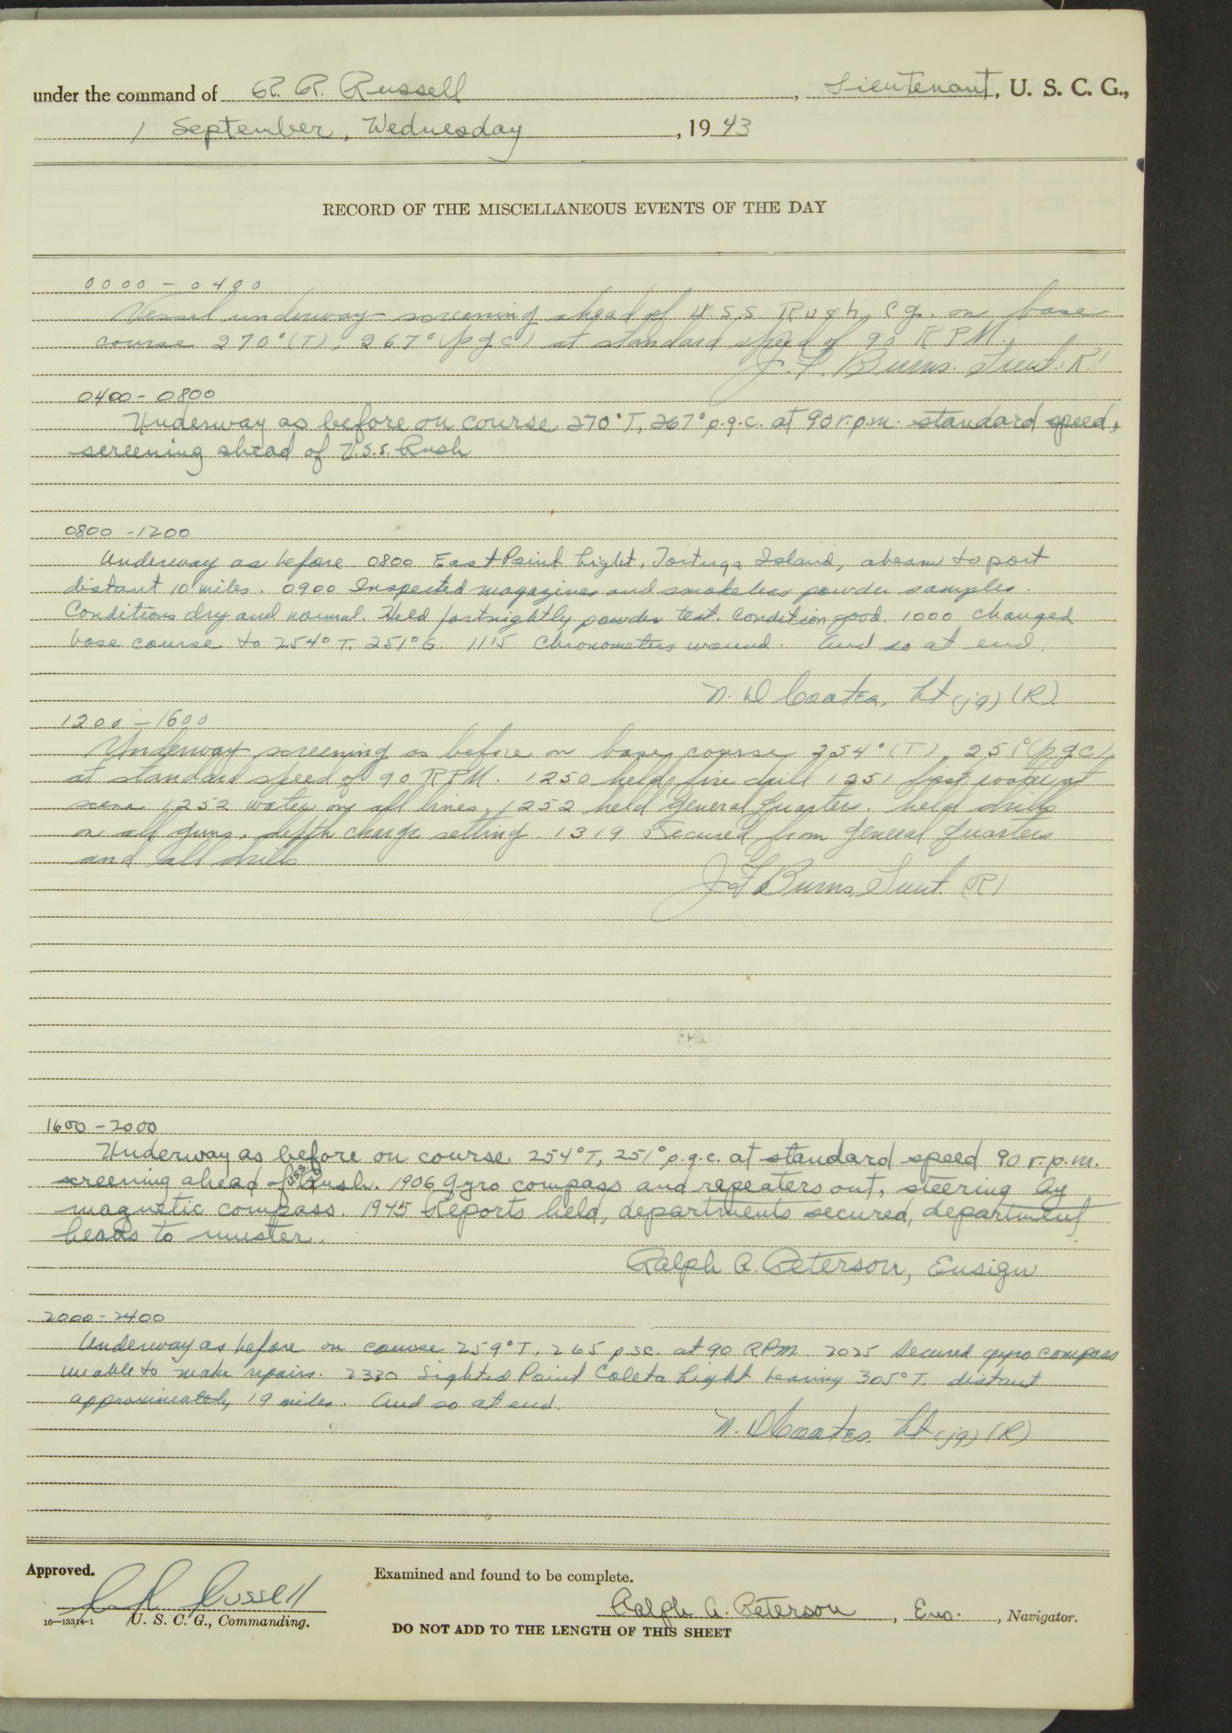 under the command of R. R. Russell, Lieutenant, U. S. C. G.,
1 September, Wednesday, 1943
RECORD OF THE MISCELLANEOUS EVENTS OF THE DAY
0000 - 0400
Vessel underway screening ahead of U.S.S. Rush, C.G. on base
course 270°(T), 267°(pgc) at standard speed of 90 R.P.M.
J. F. Burns. Lieut. R)
0400 - 0800
Underway as before on course 270°T, 267° p.g.c. at 90 r.p.m. standard speed,
screening ahead of U.S.S. Rush
0800 - 1200
Underway as before 0800 East Point Light, Tortuga Island, abeam to port
distant 10 miles. 0900 Inspected magazines and smokeless powder samples.
Conditions dry and normal. Held fortnightly powder test. Condition good. 1000 changed
base course to 254° T. 251° G. 1115 Chronometers wound. And so at end.
N. D Coates, Lt (jg) (R)
1200 - 1600
Underway screening as before on base course 254° (T), 251° (pgc),
at standard speed of 90 RPM. 1250 held fire drill 1251 first water at
scene 1252 water on all lines. 1252 held General Quarters. held drills
on all guns, depth charge setting 1319 Secured from General Quarters
and all drills
J F Burns, Lieut. (R)
1600 - 2000
Underway as before on course 254°T, 251° p.g.c. at standard speed 90 r.p.m.
screening ahead of USS Rush. 1906 Gyro compass and repeaters out, steering by
magnetic compass. 1945 Reports held, departments secured, department
heads to muster.
Ralph A. Peterson, Ensign
2000 - 2400
Underway as before on course 259°T, 265 p.s.c. at 90 R.P.M. 2025 Secured gyro compass
unable to make repairs. 2330 Sighted Point Caleta Light bearing 305°T distant
approximately 19 miles. And so at end.
N. D Coates. Lt (jg) (R)
Approved.
R R Russell
16—13314-1 U. S. C. G., Commanding.
Examined and found to be complete.
Ralph A. Peterson, Ens., Navigator.
DO NOT ADD TO THE LENGTH OF THIS SHEET